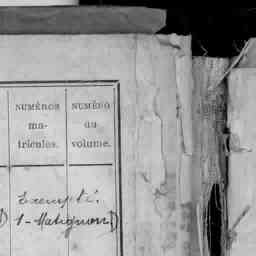 NUMÉROS
ma-
tricules.
NUMÉRO
du
volume.
Exempté.
) 1 - Matignon)